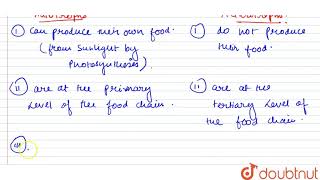 ① can produce their own food. ① do not produce
(from sunlight by their food.
photosynthesis).
② are at the primary ② are at the
level of the food chain. tertiary level of
the food chain.
③.
doubtnut